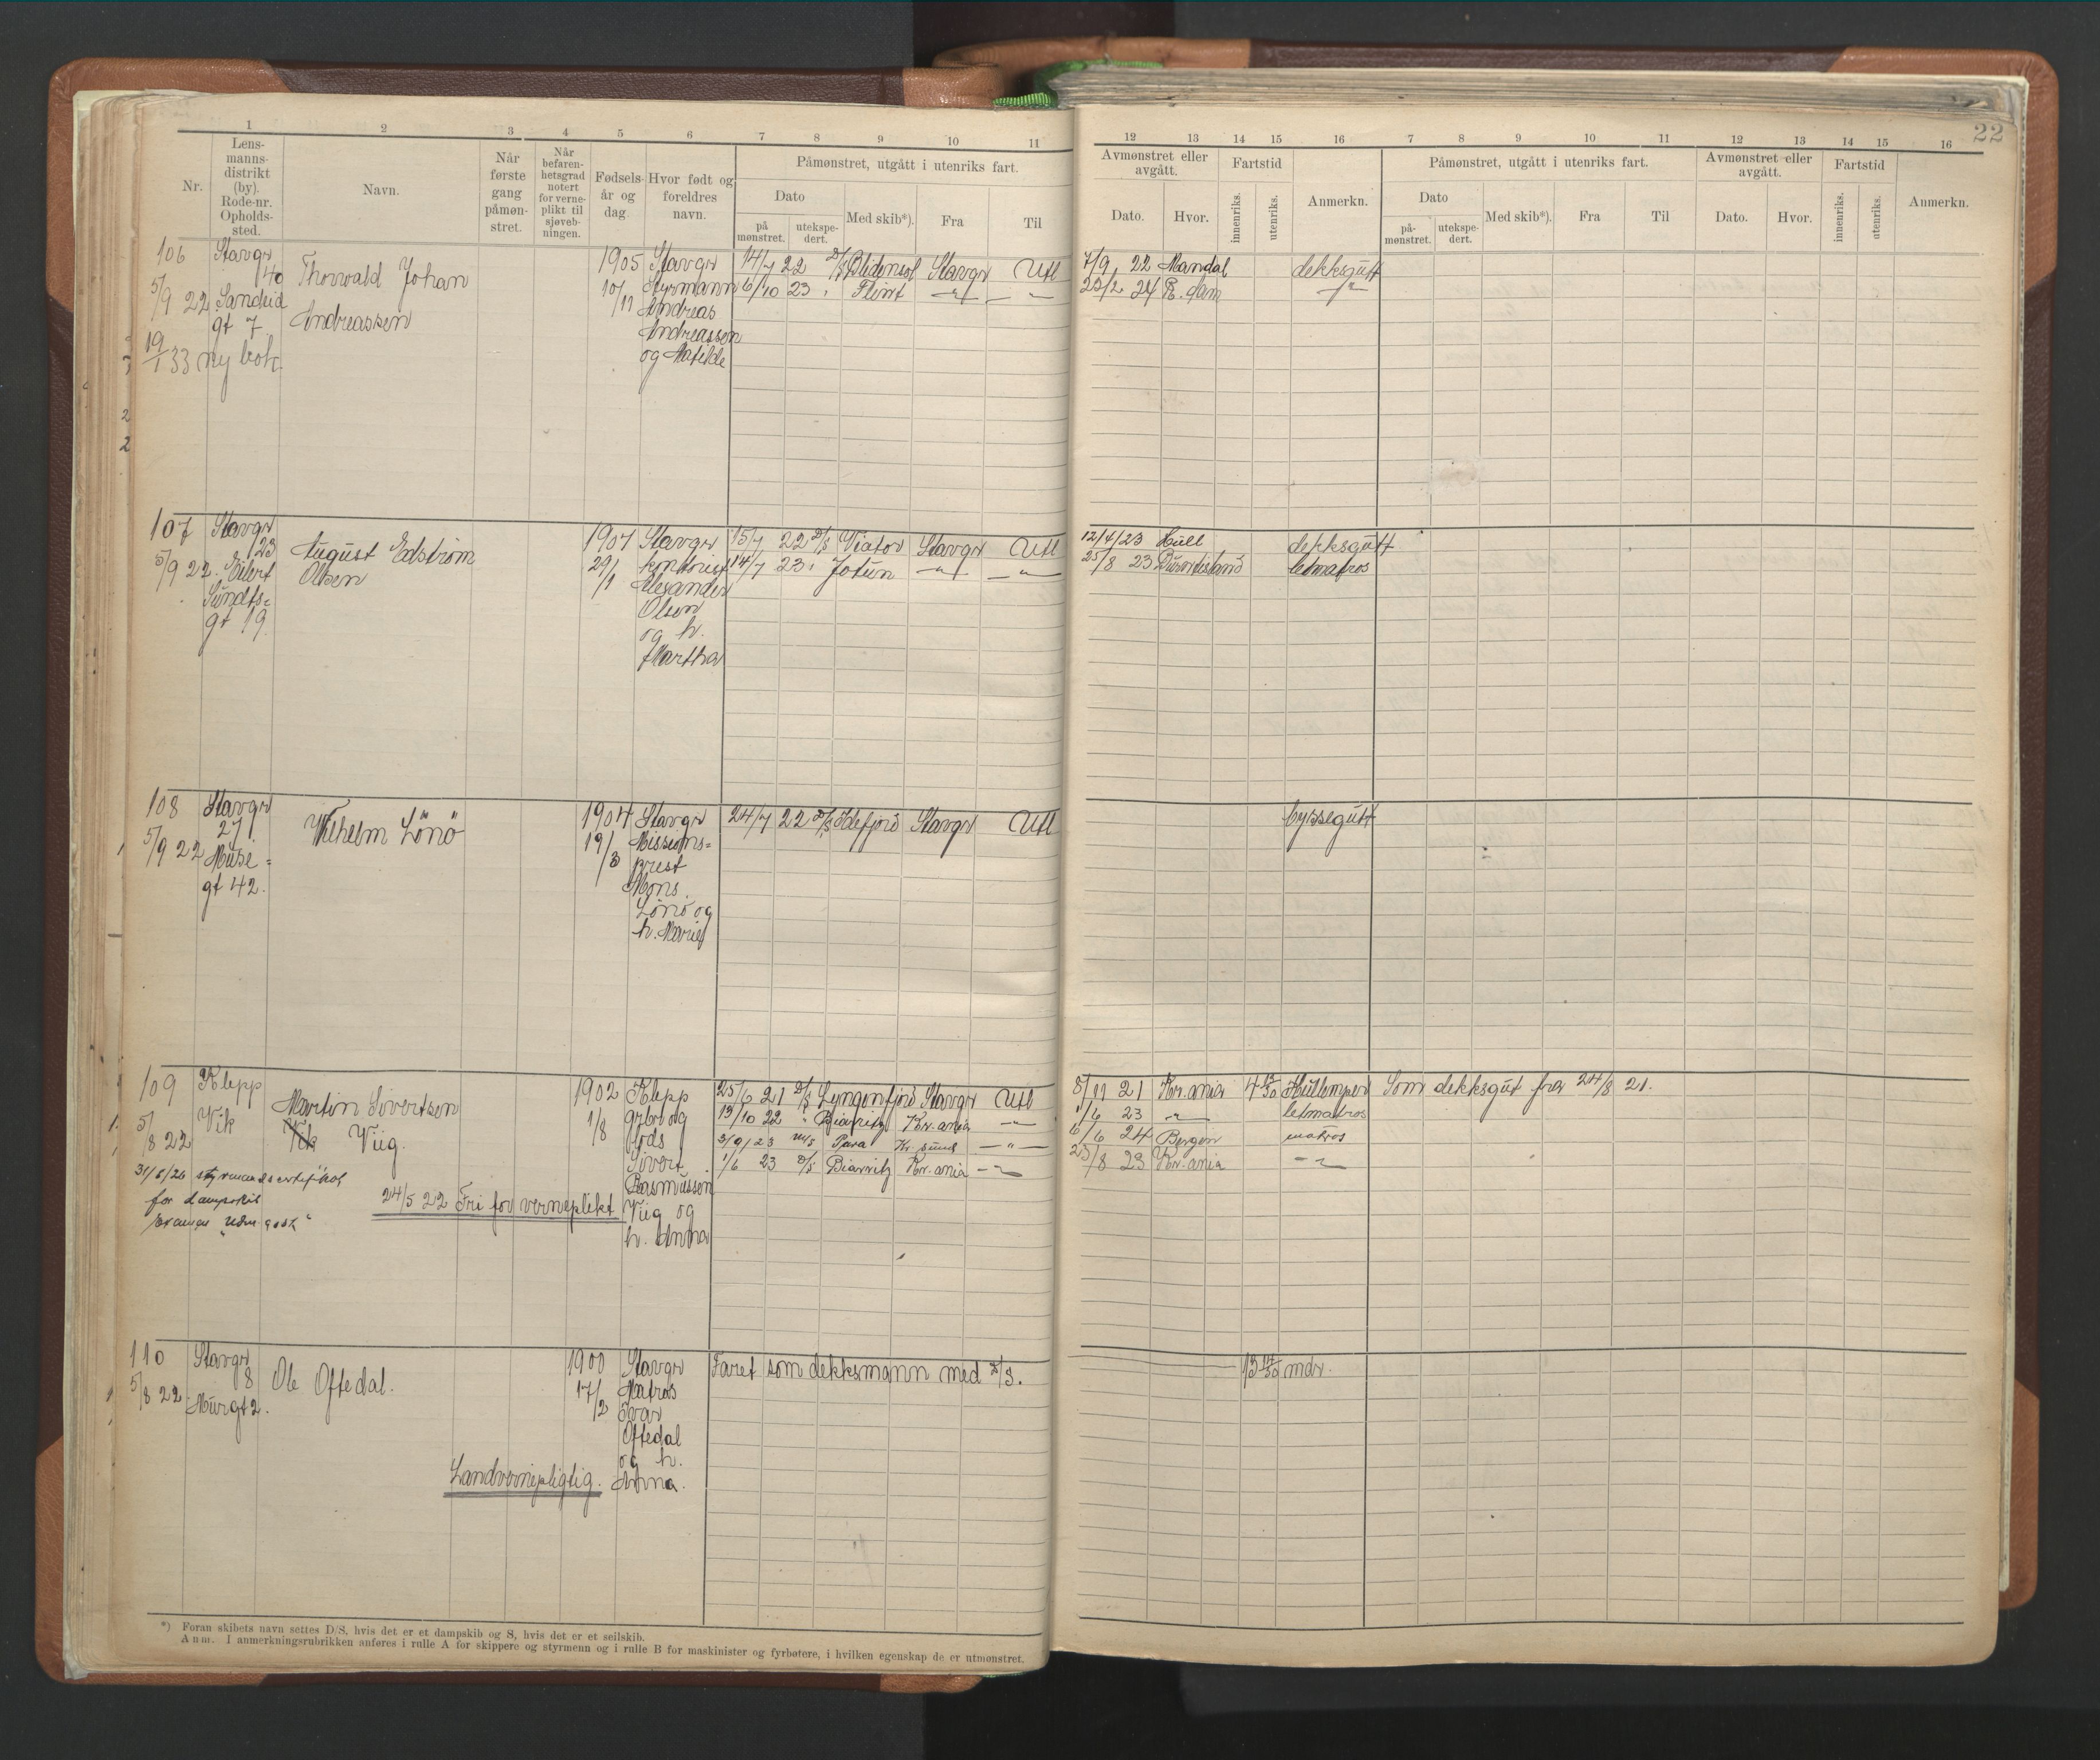 22
1 2 3 4 5 6 7 8 9 10 11
Nr.
Lens-
manns-
distrikt
(by).
Rode-nr.
Opholds-
sted.
Navn.
Når
første
gang
påmøn-
stret.
Når
befaren-
hetsgrad
notert
for verne-
plikt til
sjøveb-
ningen.
Fødsels-
år og
dag.
Hvor født og
foreldres
navn.
Påmønstret, utgått i utenriks fart.
Dato
på
mønstret.
utekspe-
dert.
Med skib*).
Fra
Til
12 13 14 15 16 7 8 9 10 11 12 13 14 15 16
Avmønstret eller
avgått.
Dato.
Hvor.
Fartstid
innenriks.
utenriks.
Anmerkn.
Påmønstret, utgått i utenriks fart.
Dato
på-
mønstret.
utekspe-
dert.
Med skib*).
Fra
Til
Avmønstret eller
avgått.
Dato.
Hvor.
Fartstid
innenriks.
utenriks.
Anmerkn.
106
5/9 22
19/1 33 ny bok.
Stavgr
40
Sandeid
gt 7
Thorvald Johan
Andreassen
1905
10/11
Stavgr
Styrmann
Andreas
Andreassen
og Matilde
14/7 22 D/S Blidensol Stavgr Utl
6/10 23 " Flint —"— —"—
7/9 22 Mandal dekksgutt
25/2 24 R.dam —"—
107
5/9 22
Stavgr
23
Eilert
Sundts-
gt 19
August Edström
Olsen
1907
29/1
Stavgr
kontorist
Alexander
Olsen
og h.
Martha
15/7 22 D/S Viator Stavgr Utl
14/7 23 " Jotun —"— —"—
12/4/23 Hull dekksgutt
25/8 23 letmatros
108
5/9 22
Stavgr
27
Muse-
gt 42.
Wilhelm Lönö
1904
19/3
Stavgr
Missions-
prest
Mons
Lönö og
h. Marie
24/7 22 D/S Idefjord Stavgr Utl
byssegutt
109
5/8 22
Klepp
Vik
Martin Sivertsen
Vik Viig.
31/6/26
for dampskib
24/5 22 Fri for verneplikt
1902
1/8
Klepp
grbr og
fods
Sivert
Rasmussen
Viig og
h. Anna
25/6 21 D/S Lyngenfjord Stavgr Utl
19/10 22 " Biarritz Kr.ania —"—
3/9/23 m/s Para Kr.sund —"—
1/6 23 D/S Biarritz Kr.ania —"—
8/11 21 Kr.ania 4 13/30 Kullemper Som dekksgut fra 24/8 21.
1/6 23 —"— letmatros
6/6 24 Bergen matros
25/8 23 Kr.ania —"—
110
5/8 22
Stavgr
8
Murgt 2.
Ole Oftedal.
Landvernepligtig.
1900
17/2
Stavgr
Matros
Ivar
Oftedal
og h.
Anna.
Faret som dekksmann med D/S.
13 14/30 mdr.
*) Foran skibets navn settes D/S, hvis det er et dampskib og S, hvis det er et seilskib.
Anm. I anmerkningsrubrikken anføres i rulle A for skippere og styrmenn og i rulle B for maskinister og fyrbøtere, i hvilken egenskap de er utmønstret.